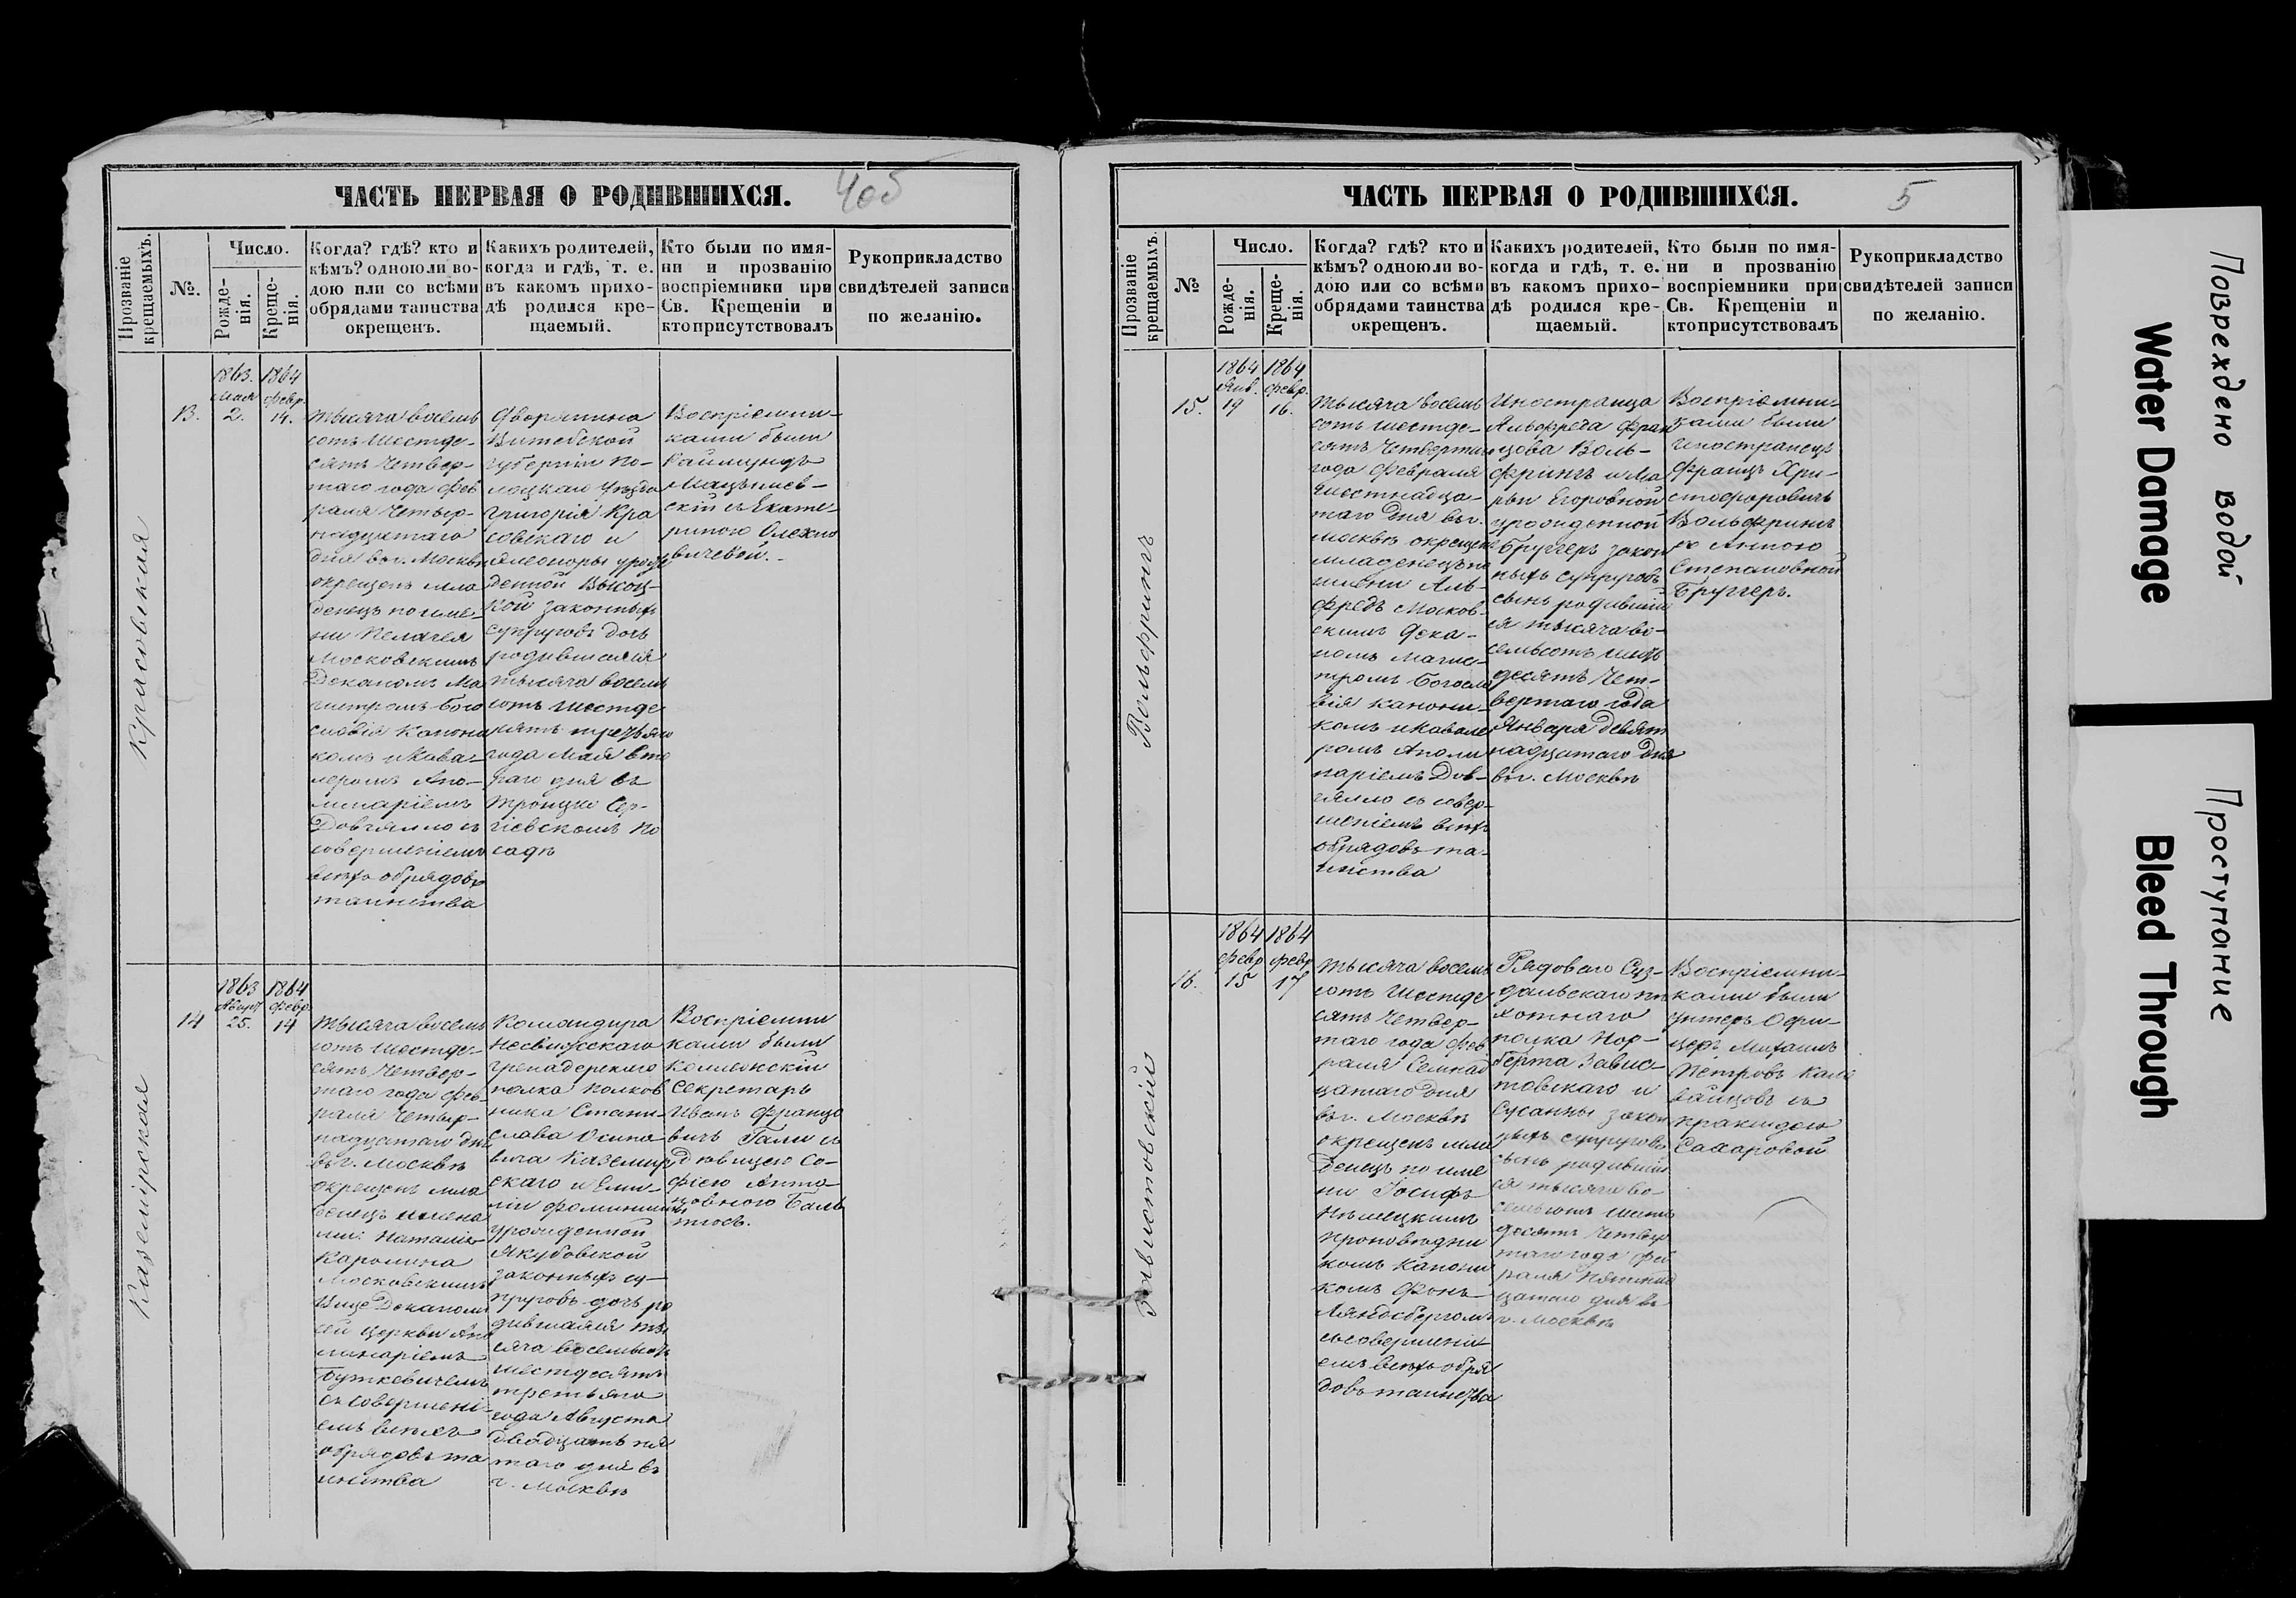 ЧАСТЬ ПЕРВАЯ О РОДИВШИХСЯ.
4об
Прозваніе
крещаемыхъ.
№.
Число.
Рожде-
нія.
Креще-
нія.
Когда? гдѣ? кто и
кѣмъ? одноюли во-
дою или со всѣми
обрядами таинства
окрещенъ.
Какихъ родителей,
когда и гдѣ, т. е.
въ какомъ прихо-
дѣ родился кре-
щаемый.
Кто были по имя-
ни и прозванію
воспріемники при
Св. Крещеніи и
кто присутствовалъ
Рукоприкладство
свидѣтелей записи
по желанію.
Красовская
13.
1863.
Мая
2.
1864
февр.
14.
Тысяча восемь
сотъ шестьде-
сятъ четвер-
таго года Фев
раля четыр-
надцатаго
дня въ г. Москвѣ
окрещенъ мла
денецъ по име-
ни Пелагея
Московскимъ
Деканомъ Ма
гистромъ Бого
словія Канони
комъ и Кава-
леромъ Апо-
линаріемъ
Довгялло съ
совершеніемъ
всѣхъ обрядовъ
таинства
Дворянина
Витебской
губерніи По-
лоцкаго уѣзда
Григорія Кра
совскаго и
Элеоноры урож
денной Высоц-
кой законныхъ
супруговъ дочь
родившаяся
тысяча восемь
сотъ шестьде
сятъ третьяго
года Мая вто
раго дня въ
Троицко Сер-
гіевскомъ По
садѣ
Воспріемни-
ками были
Раймундъ
Мацѣпиев-
скій съ Екате-
риною Олехно
вичевой.-
Каземірская
14
1863
Август
25.
1864
Февр.
14
Тысяча восемь
сотъ шестьде-
сятъ четвер-
таго года Фев-
раля четыр-
надцатаго дня
въ г. Москвѣ
окрещенъ мла
денецъ имена
ми: Наталія
Каролина
Московскимъ
Вице Деканомъ
сей церкви Апо
линаріемъ
Буткевичемъ
съ совершені-
емъ всѣхъ
обрядовъ та
инства
Командира
Несвижскаго
гренадерскаго
полка Полков
ника Стани-
слава Осипо-
вича Каземир
скаго и Еми-
ліи Фоминишны
урожденной
Якубовской
законныхъ су-
пруговъ дочь ро
дившаяся ты
сяча восемьсотъ
шестьдесятъ
третьяго
года Августа
двадцать пя
таго дня въ
г. Москвѣ
Воспріемни
ками были
Коллежскій
Секретарь
Иванъ Францо
вичъ Гали съ
Дѣвицею Со-
фіею Анто-
новною Баль
тюсъ.
ЧАСТЬ ПЕРВАЯ О РОДИВШИХСЯ.
5
Прозваніе
крещаемыхъ.
№
Число.
Рожде-
нія.
Креще-
нія.
Когда? гдѣ? кто и
кѣмъ? одноюли во-
дою или со всѣми
обрядами таинства
окрещенъ.
Какихъ родителей,
когда и гдѣ, т. е.
въ какомъ прихо-
дѣ родился кре-
щаемый.
Кто были по имя-
ни и прозванію
воспріемники при
Св. Крещеніи и
кто присутствовалъ
Рукоприкладство
свидѣтелей записи
по желанію.
Вольфрингъ
15.
1864
Янв.
19
1864
февр.
16.
Тысяча восемь
сотъ шестьде-
сятъ четвертаго
года Февраля
шестнадца-
таго дня въ г.
Москвѣ окрещенъ
младенецъ по
имени Аль-
фредъ Москов-
скимъ Дека-
номъ Магис-
тромъ Богосло
вія Канони-
комъ и Кавале
ромъ Аполи
наріемъ Дов-
гялло съ совер-
шеніемъ всѣхъ
обрядовъ та-
инства
Иностранца
Альфреда Фран
цова Воль-
фрингъ и Ма
рьи Егоровной
урожденной
Бруггеръ закон
ныхъ супруговъ
сынъ родившій
ся тысяча во-
семьсотъ шесть
десятъ чет-
вертаго года
Января девят
надцатаго дня
въ г. Москвѣ
Воспріемни-
ками были
иностранецъ
Францъ Хри-
стофоровичъ
Вольфрингъ
съ Анною
Степановной
Бруггеръ.
Завистовскій
16.
1864
февр
15
1864
февр
17
Тысяча восемь
сотъ шестьде
сятъ четвер-
таго года Фев
раля семнад
цатаго дня
въ г. Москвѣ
окрещенъ мла
денецъ по име
ни Іосифъ
Нѣмецкимъ
Проповѣдни
комъ Канони
комъ Фонъ-
Ляндсбергомъ
съ совершені-
емъ всѣхъ обря
довъ таинства
Рядоваго Суз-
дальскаго пѣ
хотнаго
полка Нор-
берта Завис-
товскаго и
Сусанны закон
ныхъ супруговъ
сынъ родившій
ся тысяча во-
семьсотъ шесть
десятъ четвер
таго года Фев
раля пятнад
цатаго дня въ
г. Москвѣ
Воспріемни-
ками были
Унтеръ Офи-
церъ Михаилъ
Петровъ Кале
вайцовъ съ
Пракидою
Сахаровой
Повреждено водой
Water Damage
Проступание
Bleed Through